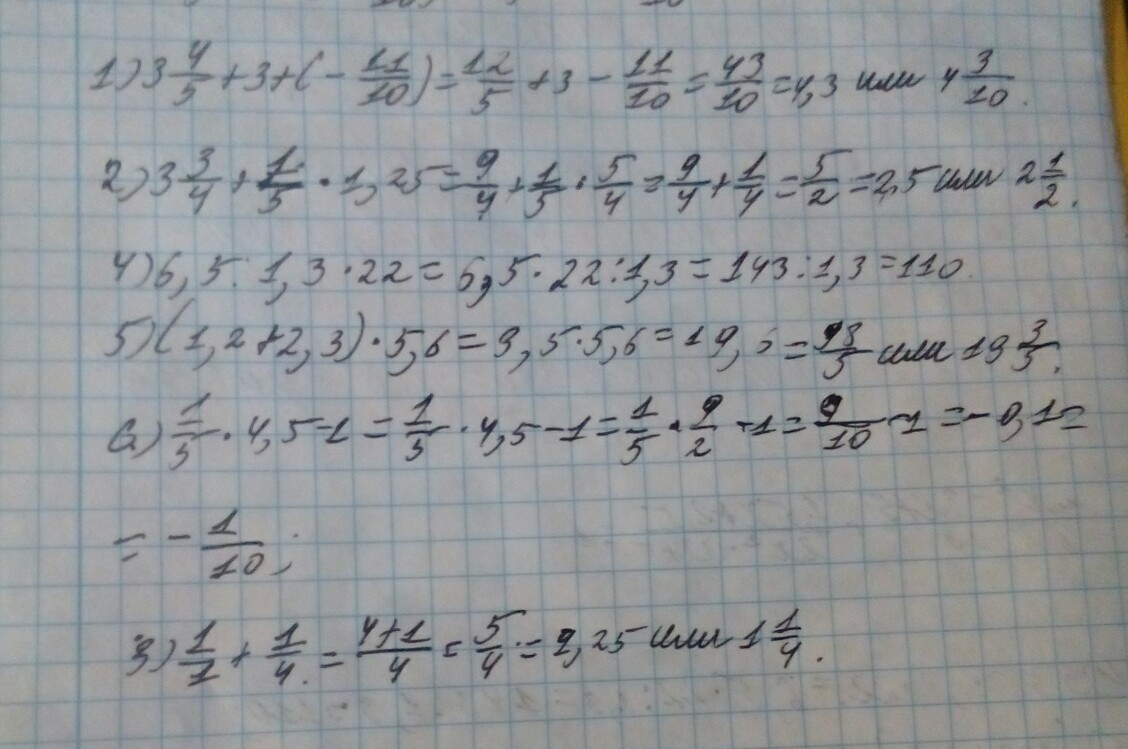 1) 3 4/5 + 3 + (- 11/10) = 12/5 + 3 - 11/10 = 43/10 = 4,3 или 4 3/10.
2) 3 3/4 + 1/5 · 1,25 = 9/4 + 1/5 · 5/4 = 9/4 + 1/4 = 5/2 = 2,5 или 2 1/2.
4) 6,5 : 1,3 · 22 = 6,5 · 22 : 1,3 = 143 : 1,3 = 110.
5) (1,2 + 2,3) · 5,6 = 3,5 · 5,6 = 19,6 = 98/5 или 19 3/5.
6) 1/5 · 4,5 - 1 = 1/5 · 4,5 - 1 = 1/5 · 9/2 - 1 = 9/10 - 1 = - 0,1 =
= - 1/10;
3) 1/1 + 1/4 = 4+1/4 = 5/4 = 1,25 или 1 1/4.